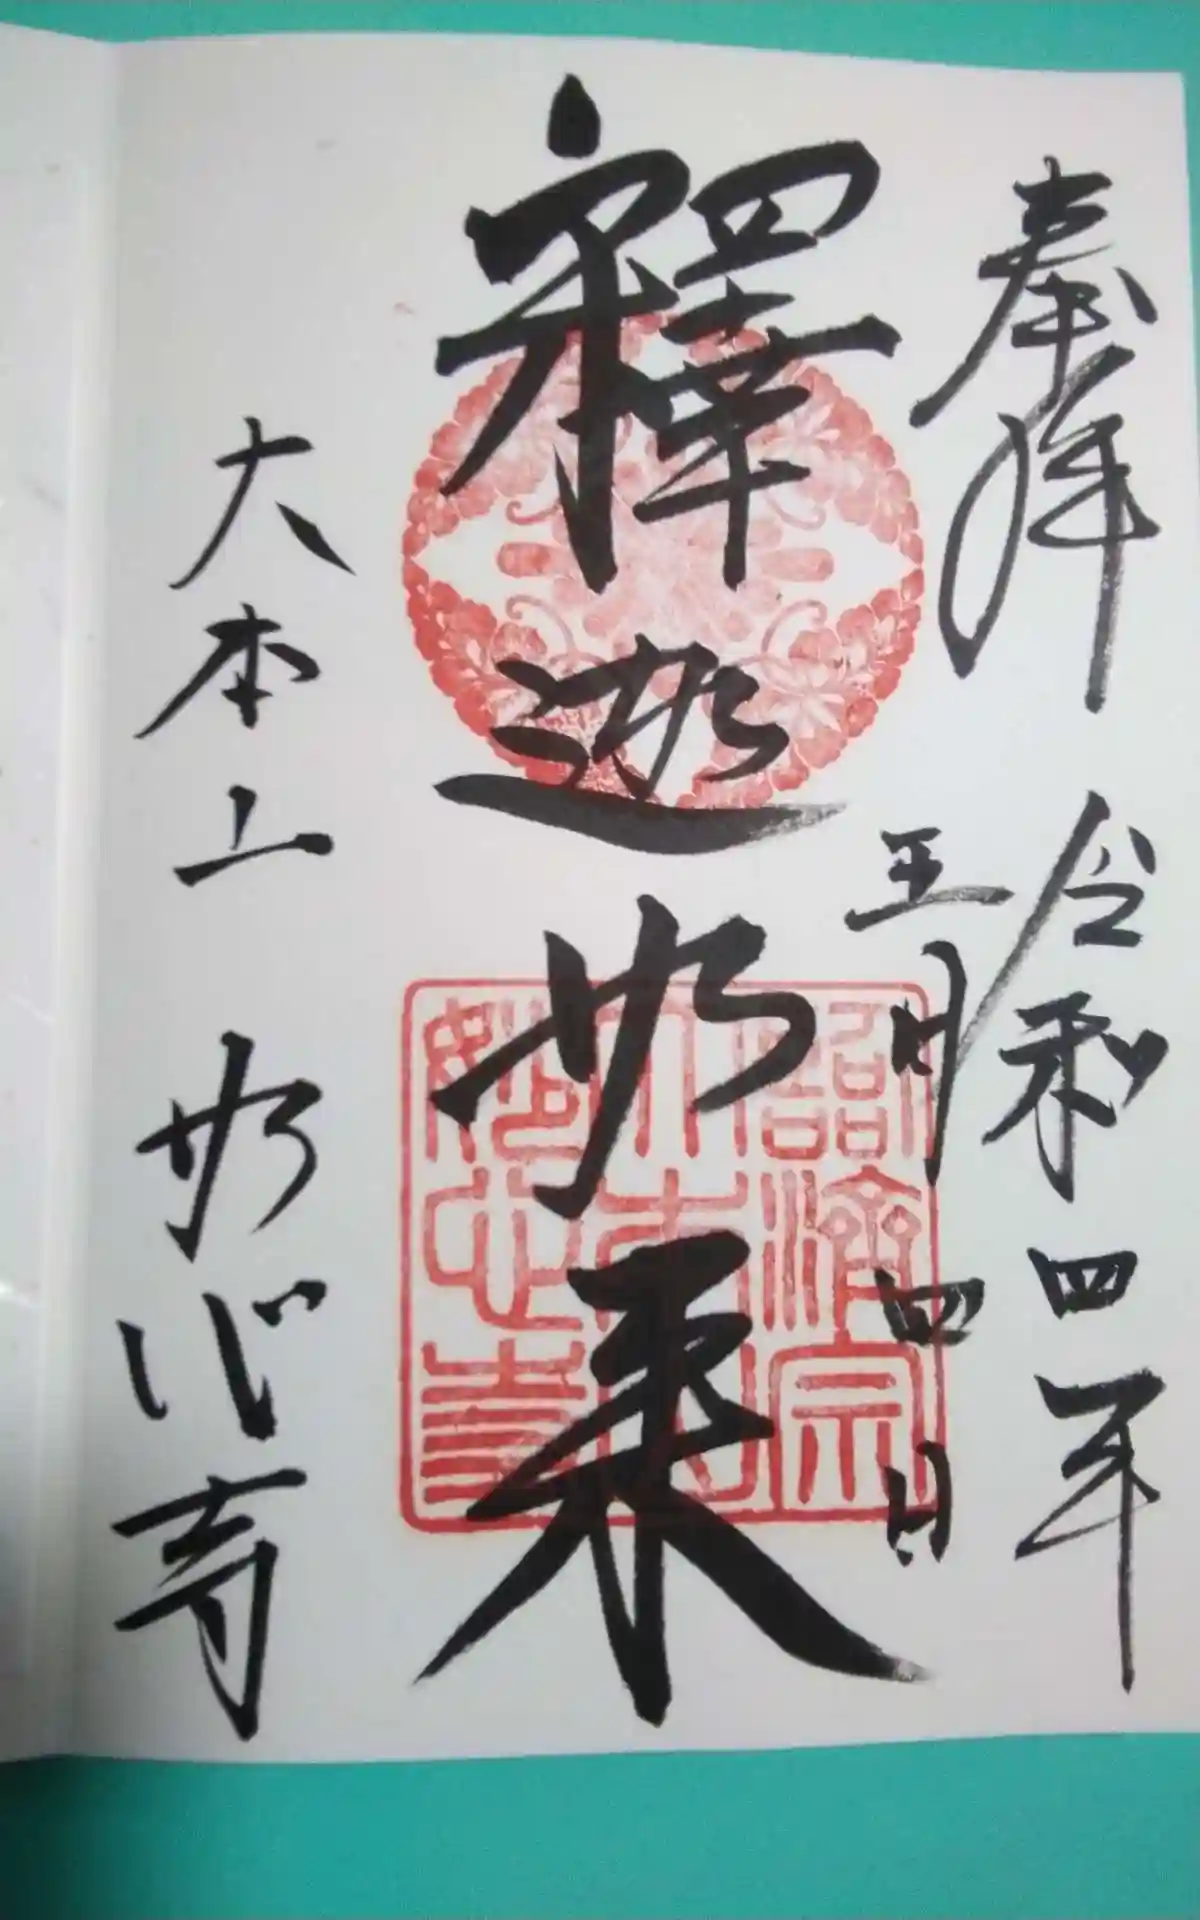 奉拝
令和四年
五月四日
釋迦如来
大本山 妙心寺
臨濟宗
大本山
妙心寺